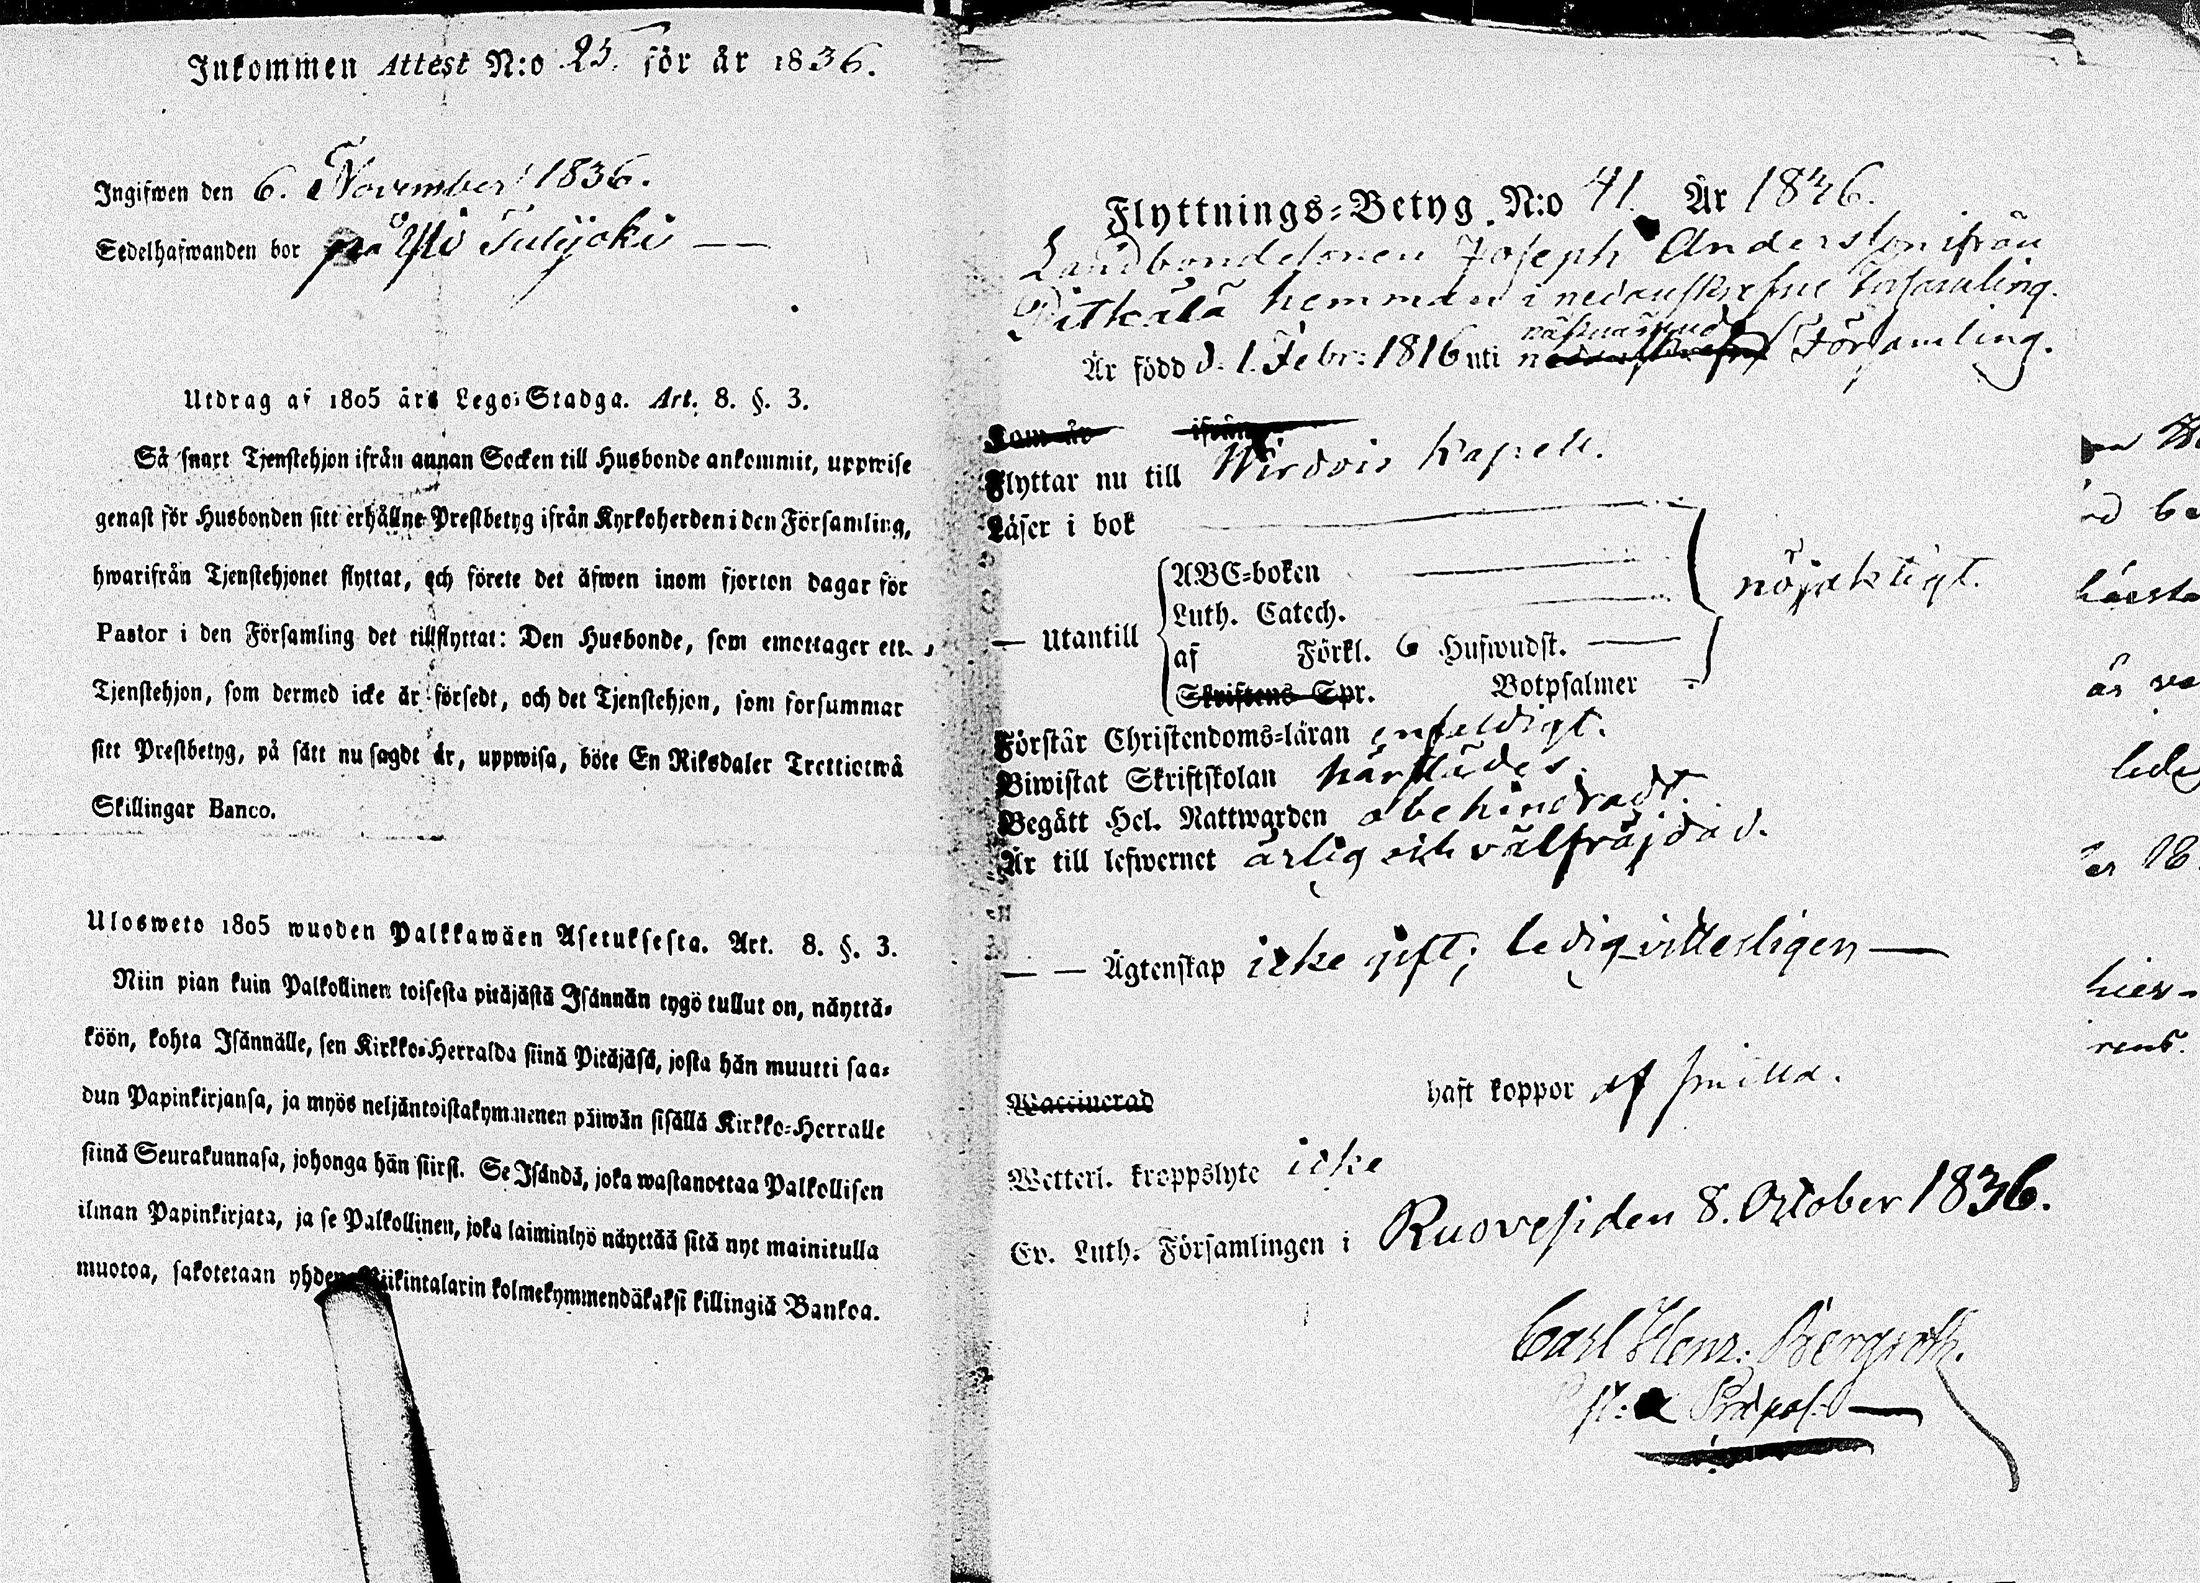 Inkommen Attest N:o 25. för år 1836.
Ingifwen den 6. November 1836.
Sedelhafwanden bor på Yli Tulijoki —
Utdrag af 1805 års Lego-Stadga. Art. 8. §. 3.
Så snart Tjenstehjon ifrån annan Socken till Husbonde ankommit, uppwise
genast för Husbonden sitt erhållne Prestbetyg ifrån Kyrkoherden i den Församling,
hwarifrån Tjenstehjonet flyttat, och förete det äfwen inom fjorton dagar för
Pastor i den Församling det tillflyttat: Den Husbonde, som emottager ett
Tjenstehjon, som dermed icke är försedt, och det Tjenstehjon, som försummar
sitt Prestbetyg, på sätt nu sagdt är, uppwisa, böte En Riksdaler Trettiotwå
Skillingar Banco.
Ulosweto 1805 wuoden Palkkawäen Asetuksesta. Art. 8. §. 3.
Niin pian kuin Palkollinen toisesta pitäjästä Isännän tygö tullut on, näyttä-
köön, kohta Isännälle, sen Kirkko-Herralda siinä Pitäjäsä, josta hän muutti saa-
dun Papinkirjansa, ja myös neljäntoistakymmenen päiwän sisällä Kirkko-Herralle
siinä Seurakunnasa, johonga hän siirsi. Se Isändä, joka wastanottaa Palkollisen
ilman Papinkirjata, ja se Palkollinen, joka laiminlyö näyttää sitä nyt mainitulla
muotoa, sakotetaan yhden Riikintalarin kolmekymmendäkaksi killingiä Bankoa.
Flyttnings-Betyg N:o 41. År 1836.
Landbondesonen Joseph Andersson ifrån
Pitkälä hemman i nedanskrefne Församling.
Är född d. 1. Febr: 1816 uti nästnämnd Församling.
Som är ifrån
Flyttar nu till Wirdois Kapell.
Läser i bok
— Utantill
ABC-boken
Luth. Catech.
af Förkl. 6 Hufwudst.
Skriftens Spr. Botpsalmer
nöjaktigt.
Förstår Christendoms-läran enfaldigt.
Biwistat Skriftskolan härstädes.
Begått Hel. Nattwarden obehindradt.
Är till lefwernet ärlig och välfräjdad.
— — Ägtenskap icke gift; ledig vitterligen —
Waccinerad haft koppor af småa.
Wetterl. kroppslyte icke
Ev. Luth. Församlingen i Ruovesi den 8. October 1836.
Carl Henr. Bergroth.